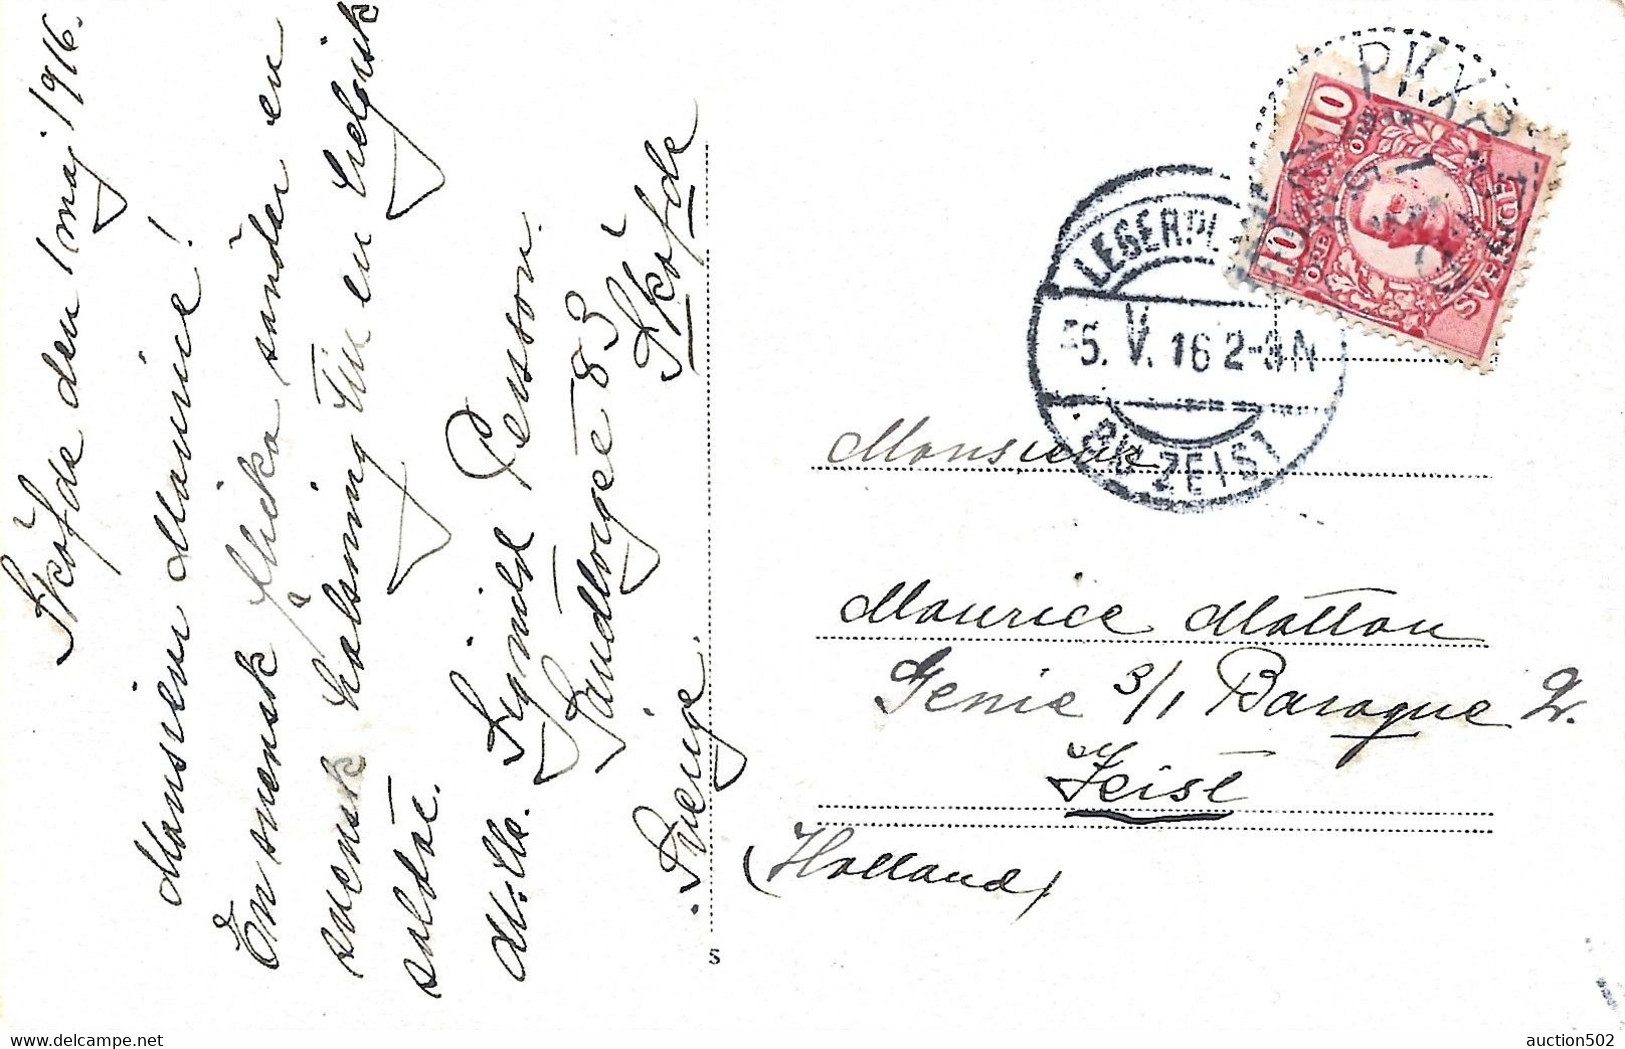 Sköfde den 1 maj 1916.
Monsieur Maurice!
En svensk flicka sänder en
svensk hälsning till en belgisk
soldat.
M:lle. Signild Persson.
Sandtorget 83
Sköfde
Sverige.
S
PKXP
SVERIGE
10 ÖRE 10
LEGERPL
5. V. 16 2-3N
BIJ ZEIST
Monsieur
Maurice Matton
Genie 3/1 Baraque 2.
Zeist
(Holland)
auction502